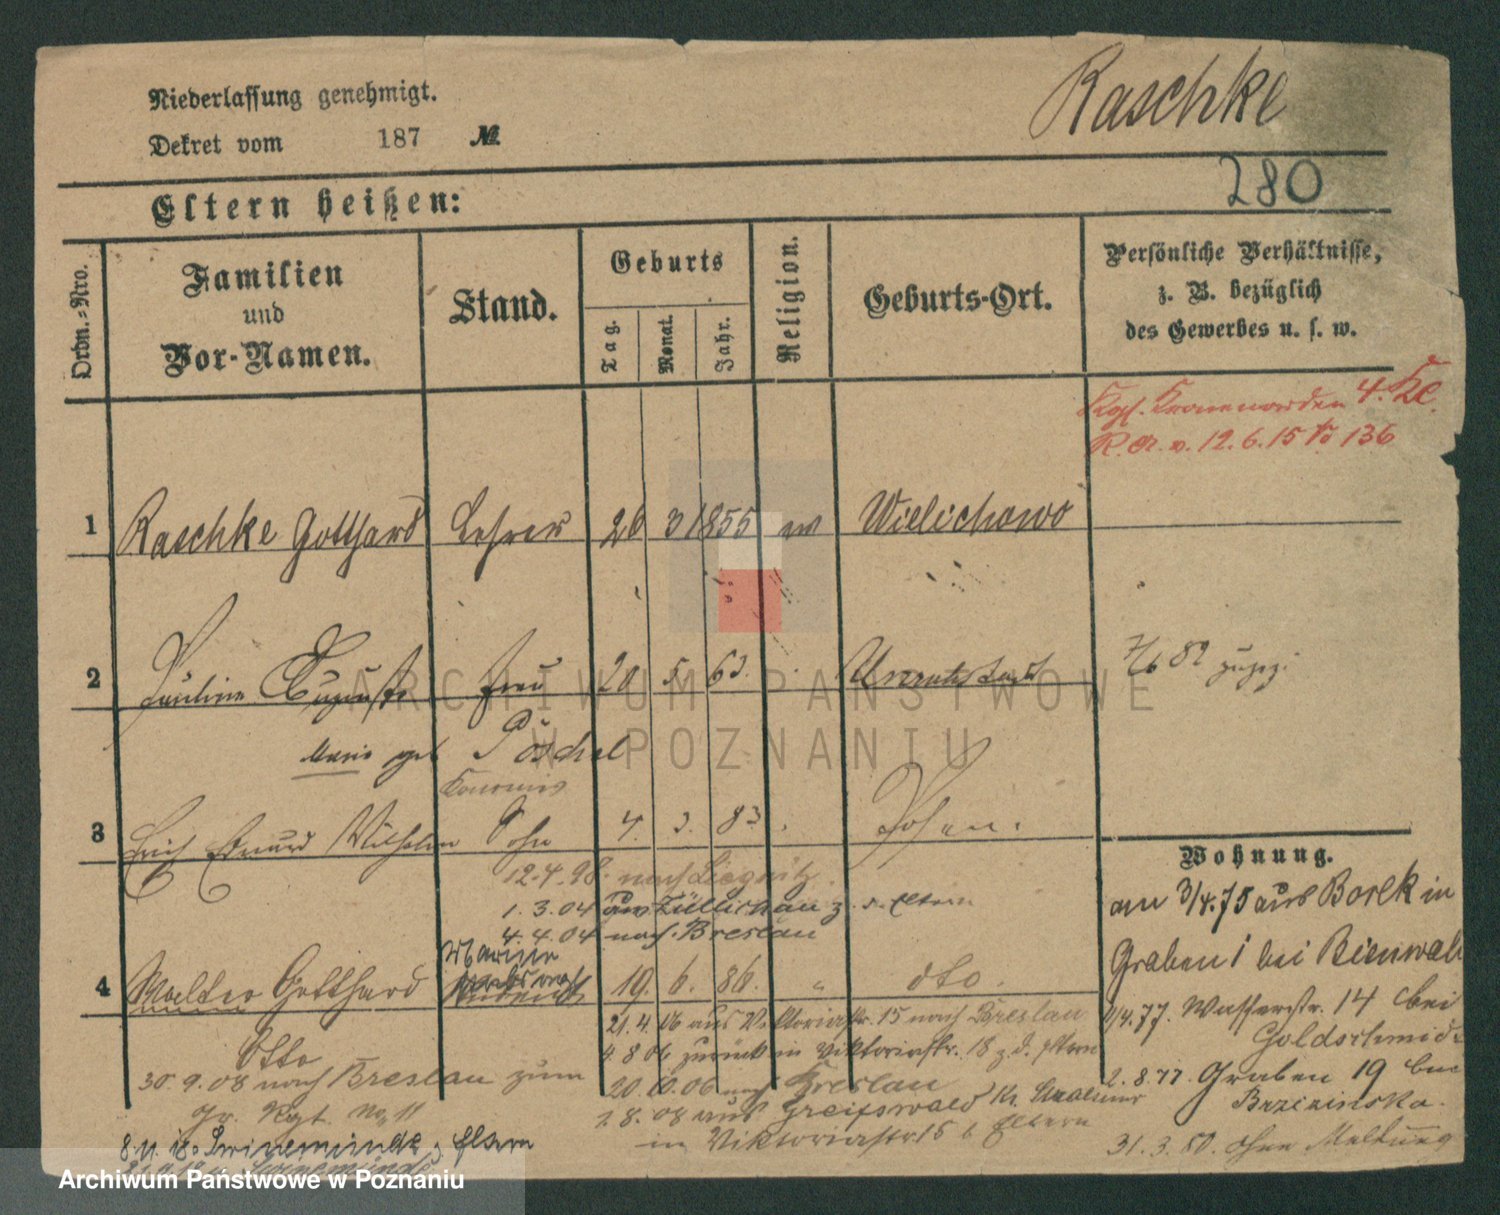 Raschke
Niederlassung genehmigt.
Dekret vom 187 №
280
Eltern heißen:
Ordn.-Nro.
Familien und Vor-Namen.
Stand.
Geburts
Tag.
Monat.
Jahr.
Religion.
Geburts-Ort.
Persönliche Verhältnisse,
z. B. bezüglich
des Gewerbes u. s. w.
Kgl. Kronenorden 4. Kl.
v. 12.6.15 No 136
1 Raschke Gotthard Lehrer 26 3 1855 ev Wielichowo
2 Pauline Auguste Frau 20 5. 63.
82
Marie geb Pöschel
3 Erich Eduard Wilhelm Sohn 4. 3. 83. Posen.
12.4.98. nach Liegnitz.
1.3.04 aus Züllichau z. d. Eltern
4.4.04 nach Breslau
4 Walter Gotthard 19. 6. 86. " dto.
Otto
21.4.06 aus Viktoriastr. 15 nach Breslau
4.8.06 zurück in Viktoriastr. 18 z. d. Eltern
20.10.06 nach Breslau
1.8.08 aus Greifswald
in Viktoriastr 15 b Eltern
30.9.08 nach Breslau zum
Gr. Rgt. No 11
8.11.18. Swinemünde z. Eltern
Swinemünde
Wohnung.
am 3/4.75 aus Borek in
Graben 1 bei Bienwald
/4.77. Wasserstr. 14 bei
Goldschmidt
2.8.77. Graben 19 bei
Brzezinska.
31.3.80. ohne Meldung
ARCHIWUM PAŃSTWOWE
W POZNANIU
Archiwum Państwowe w Poznaniu